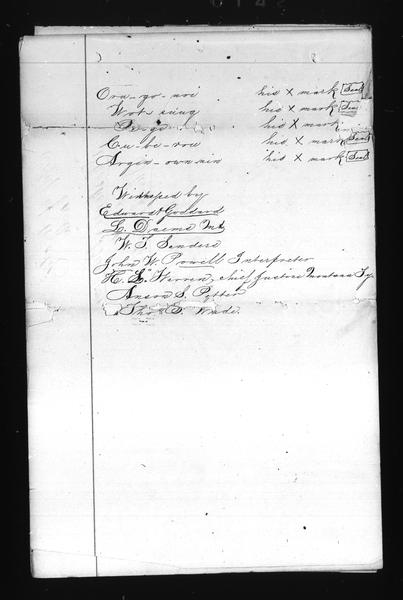 Ora-go-noi his X mark Seal
Wot sung his X mark Seal
his X mark
Cu-be-rou his X mark Seal
Argin-own-nin his X mark Seal
Witnessed by
Edward Goddard
L. Daems Md
W. F. Sanders
John W. Powell Interpreter
H. L. Warren, chief Justice Montana Ty.
Anson S. Potter
Thos E. Wade.